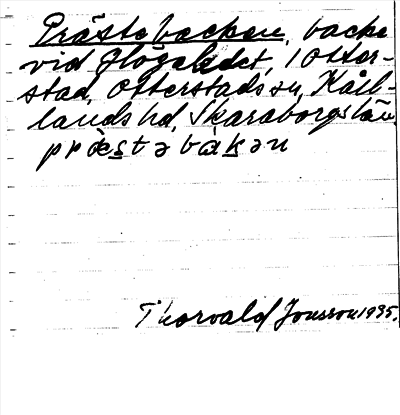 Prästebacken, backe
vid Flöghultet, i Otter-
stad, Otterstads sn, Kål-
lands hd, Skaraborgs län.
præstəbakən
Thorvald Jonsson 1935.